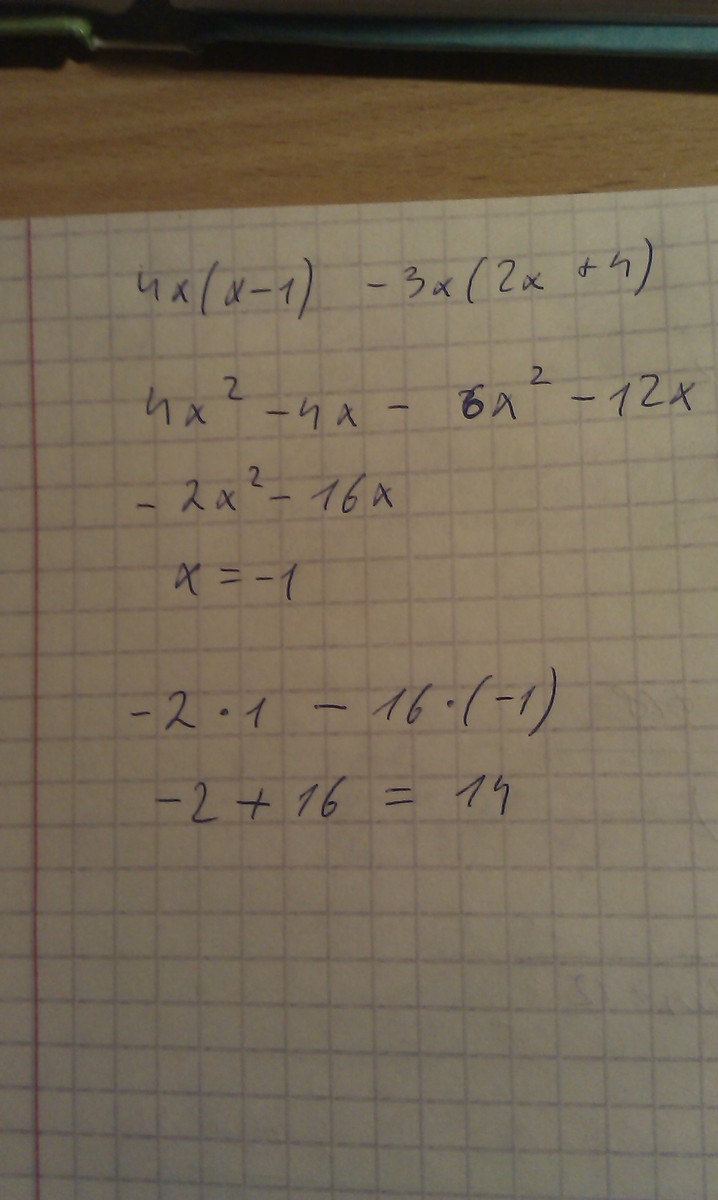 4x(x-1) - 3x(2x + 4)
4x² - 4x - 6x² - 12x
- 2x² - 16x
x = -1
-2 · 1 - 16 · (-1)
-2 + 16 = 14